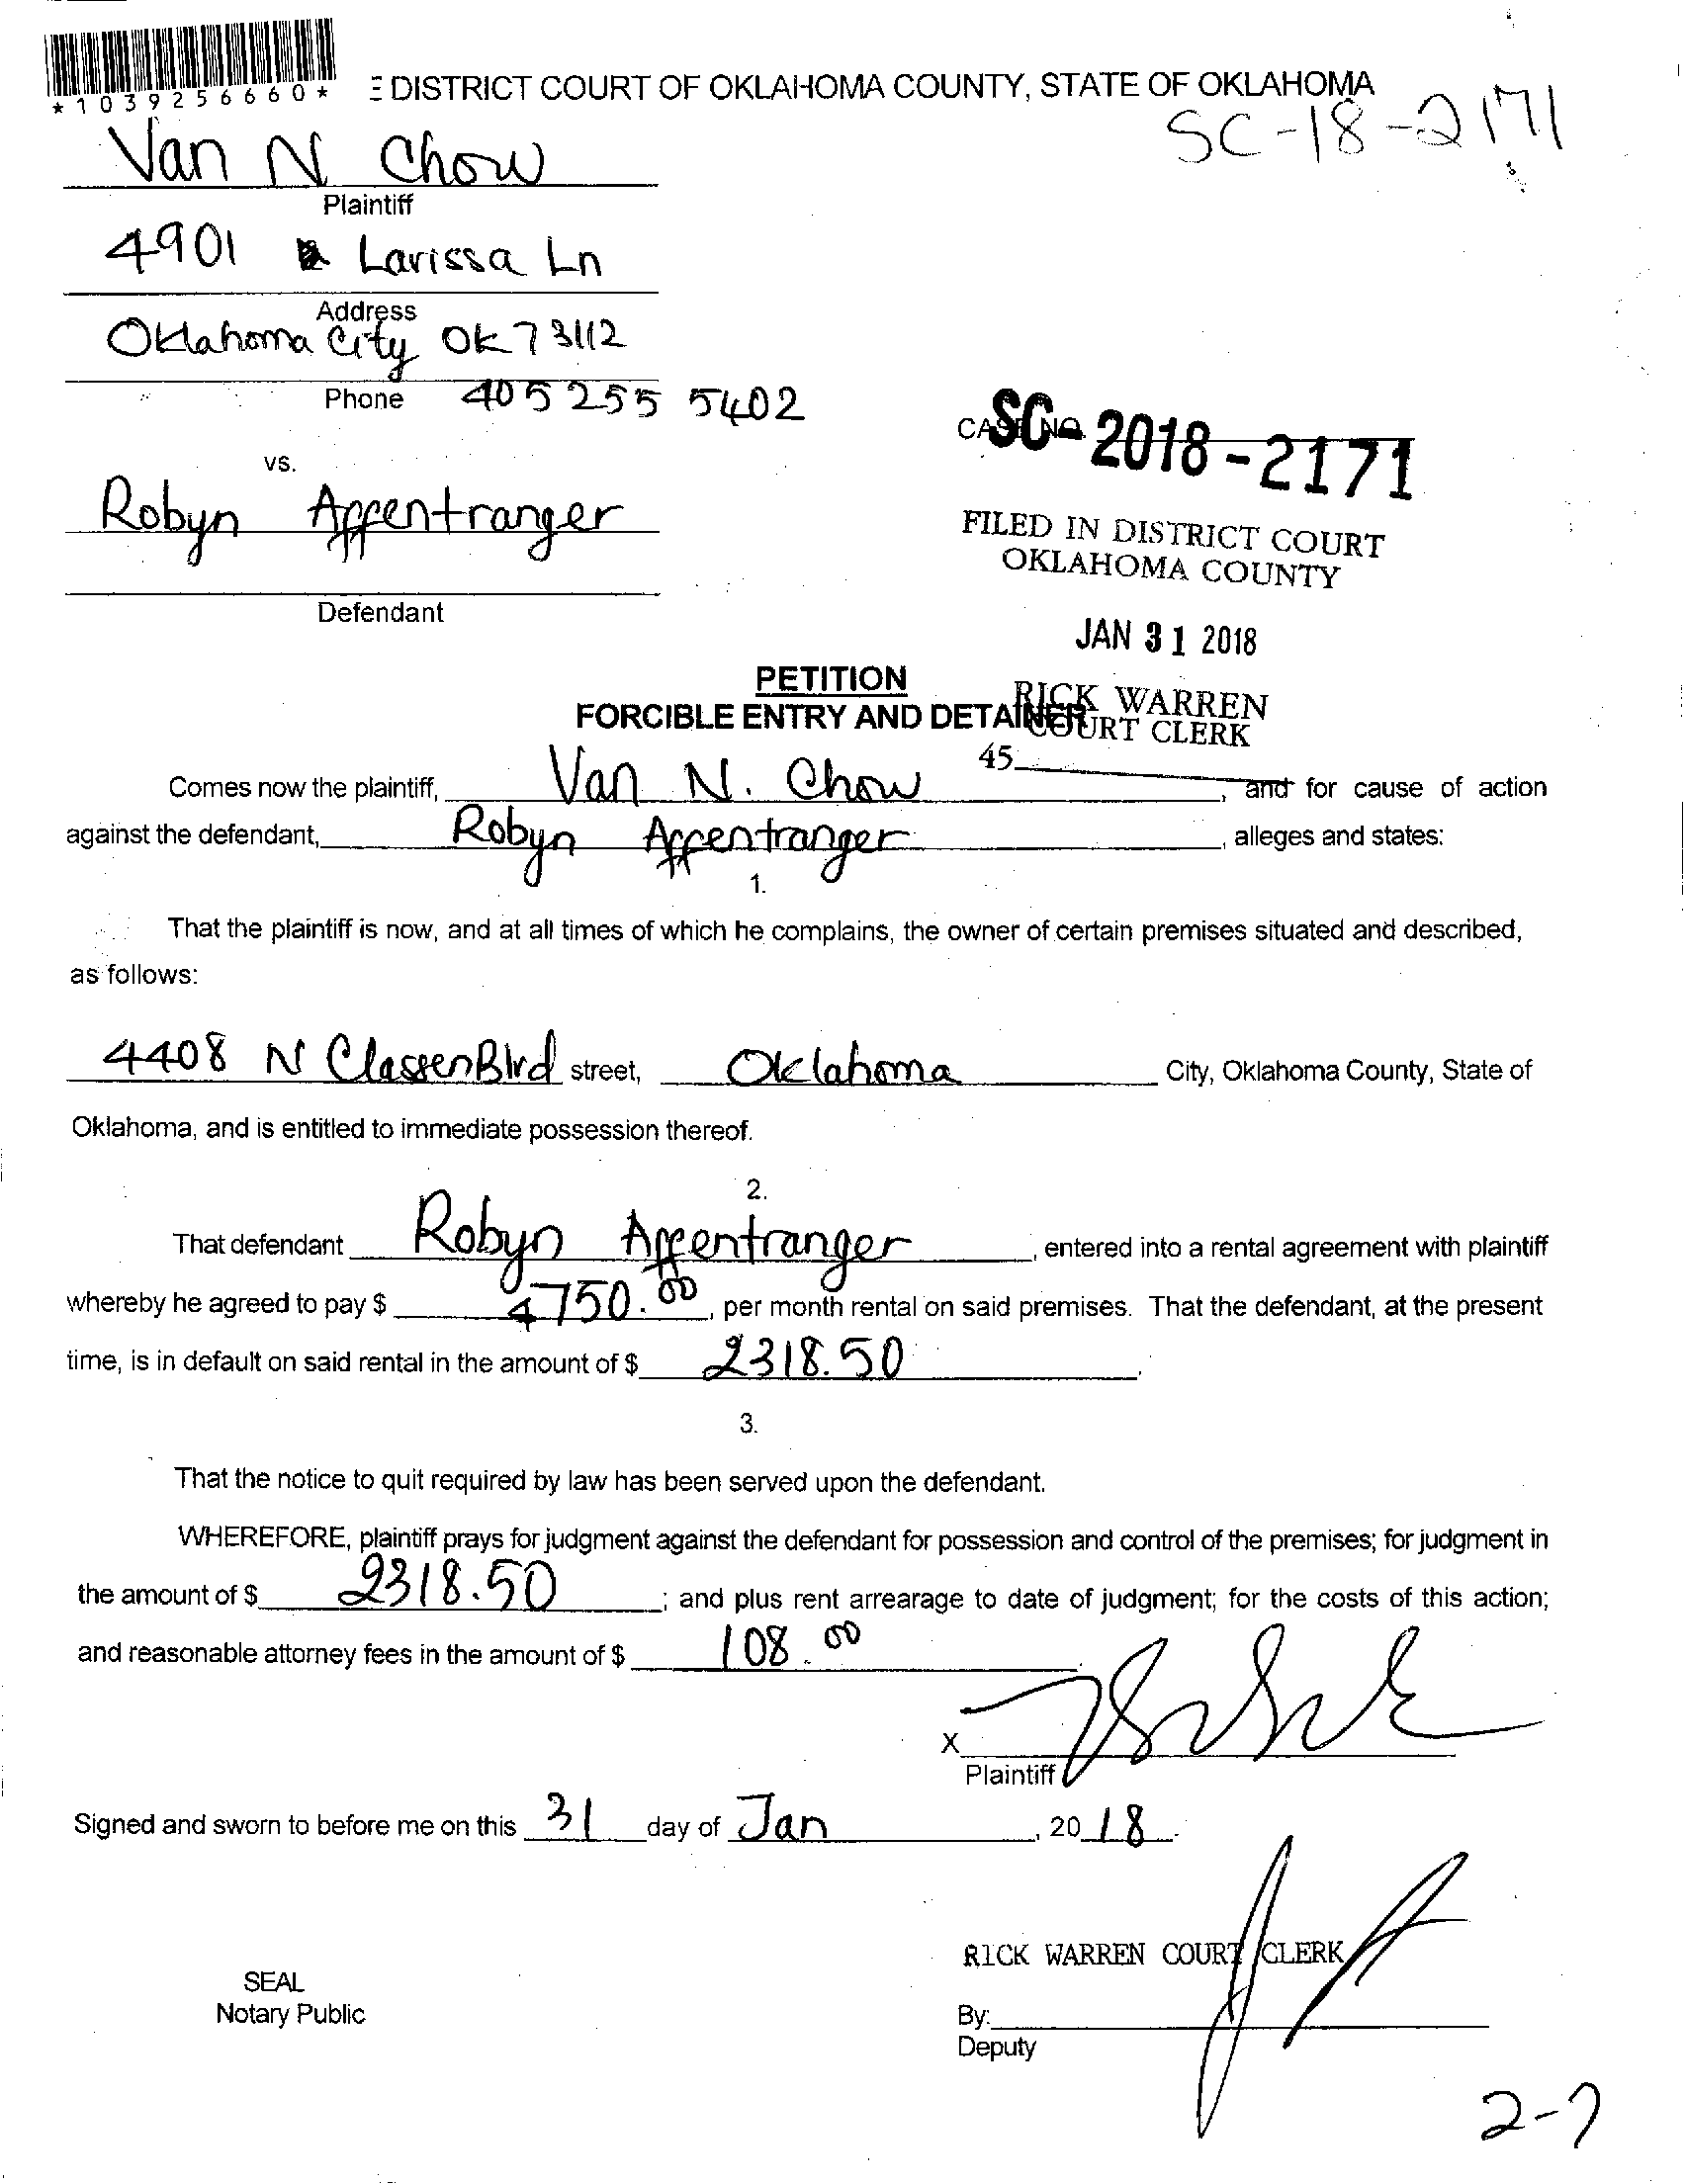 *1039256660*
E DISTRICT COURT OF OKLAHOMA COUNTY, STATE OF OKLAHOMA
SC-18-2171
Van N Chow
Plaintiff
4901 Larissa Ln
Address
Oklahoma City OK 73112
Phone 405 255 5402
CASE NO.
SC-2018-2171
vs.
Robyn Appentranger
Defendant
FILED IN DISTRICT COURT
OKLAHOMA COUNTY
JAN 31 2018
RICK WARREN
COURT CLERK
45
PETITION
FORCIBLE ENTRY AND DETAINER
Comes now the plaintiff, Van N. Chow, and for cause of action
against the defendant, Robyn Appentranger, alleges and states:
1.
That the plaintiff is now, and at all times of which he complains, the owner of certain premises situated and described,
as follows:
4408 N Classen Blvd street, Oklahoma City, Oklahoma County, State of
Oklahoma, and is entitled to immediate possession thereof.
2.
That defendant Robyn Appentranger, entered into a rental agreement with plaintiff
whereby he agreed to pay $ 750.00, per month rental on said premises. That the defendant, at the present
time, is in default on said rental in the amount of $ 2318.50.
3.
That the notice to quit required by law has been served upon the defendant.
WHEREFORE, plaintiff prays for judgment against the defendant for possession and control of the premises; for judgment in
the amount of $ 2318.50; and plus rent arrearage to date of judgment; for the costs of this action;
and reasonable attorney fees in the amount of $ 108.00
X
Plaintiff
Signed and sworn to before me on this 31 day of Jan, 2018.
RICK WARREN COURT CLERK
SEAL
Notary Public
By:
Deputy
2-7